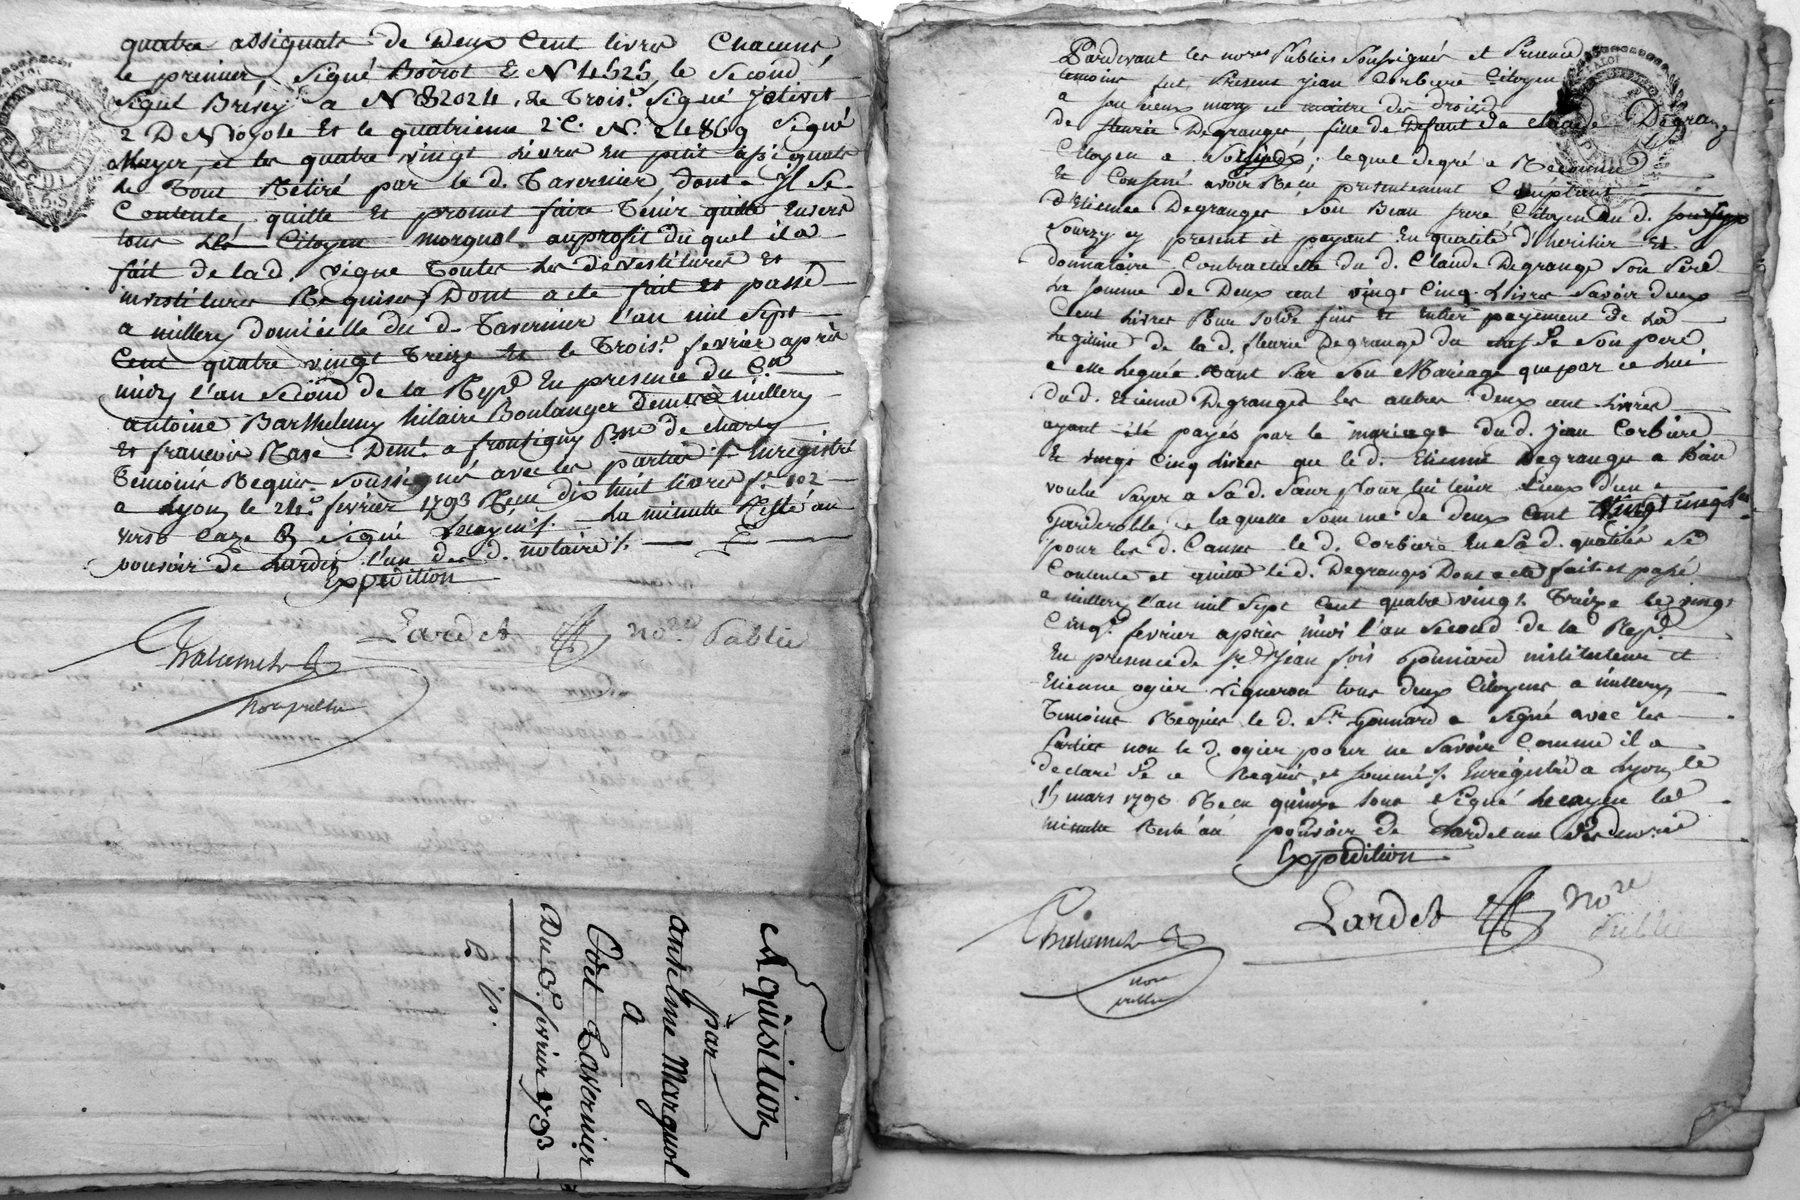 quatre assignats de Deux Cent livres Chacuns
le premier, Signé Boirot E N 4525, le Second
Signé Brisey a N 82024, le Trois.e Signé
2 D N et le quatrieme 2 C. N. Signé
Mayer, et les quatre vingt livres En petit assignats
le Tout Retiré par le d. Tavernier, dont Il Se
Contente, quitte Et promet faire Tenir quitte Envers
tous led Citoyen Margnol auprofit duquel il a
fait de lad. vigne Toutes les dévestitures Et
investitures Requises, Dont acte fait et passé
a millery domicille du d. Tavernier l'an mil Sept
Cent quatre vingt Treize Et le Trois.e fevrier après
midy l'an Second de la Rep.e En presence du C.en
antoine Barthelemy hilaire Boulanger Dem.t a millery
Et francois Dem.t a frontigny P.sse de charly
Temoins Requis Soussignés avec les parties /. Enregistré
a Lyon le fevrier 1793 Reçu dix huit livres f.o 102
verso Caze 8 Signé Lecayen /. La minutte Resté au
pouvoir de Lardet l'un des d. notaire /.
Expédition
Lardet no.re Public
Chalamel
non public
Acquisition
par
anthelme Margnol
a
Odet Tavernier
Du 3.e fevrier 1793
Pardevant les no.res Publics Soussignés et presence de
temoins fut present Jean Corbiere Citoyen
a Sou mary et maitre des droits
de fleurie Degranges, fille de Defunt Claude Degrange
Citoyen a lequel degré a Reconnu
Et Confessé avoir Recu presentement Comptant
d'Etienne Degranges Son Beau frere Citoyen du d.
Sourzy cy present et payant En qualité d'heritier Et
donnataire Contractuelle du d. Claude Degrange Son Père
La Somme de Deux cent vingt Cinq Livres Savoir deux
Cent Livres Pour Solde fins et Entier payement de La
Légitime de la d. fleurie Degrange du chef de Son pere
a elle Leguée tant Par Son Mariage que par ce lui
du d. Etienne Degranges les autres deux cent Livres
ayant été payés par le mariage du d. Jean Corbiere
Et vingt Cinq Livres que le d. Etienne Degranges a Bien
voulu payer a Sa d. Sœur Pour lui tenir Lieux d'un e
garderobbe a laquelle Somme de deux Cent vingt cinq
pour les d. Causes le d. Corbiere En Sa d. qualités Se
Contente et quitte le d. Degranges Dont acte fait et passé
a millery l'an mil Sept Cent quatre vingt Treize le vingt
Cinq.e fevrier après midi l'an Second de la Rep.e
En presence de S.r Jean fois instituteur et
Etienne ogier vigneron tous deux Citoyens a millery
Temoins Requis le d. S.r Gonnard a Signé avec les
Parties non le d. ogier pour ne Savoir Comme il a
declaré de ce Requis et Sommé /. Enregistré a Lyon le
15 mars 1793 Reçu quinze Sous Signé Lecayen la
minutte Resté au pouvoir de Lardet un des
Expédition
Lardet no.re
Public
Chalamel
non
public